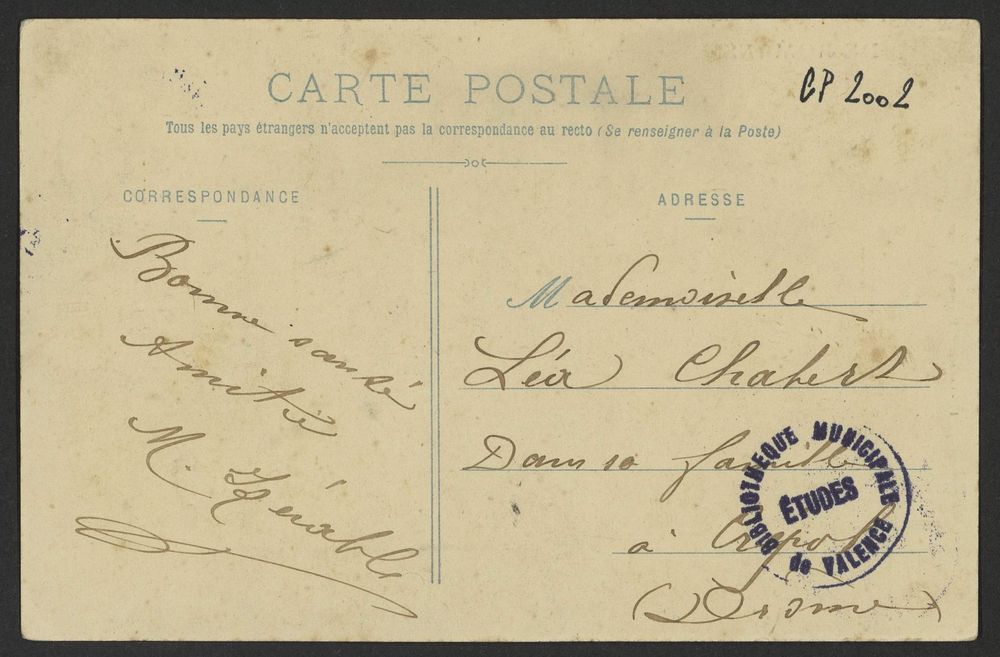 CARTE POSTALE
CP 2002
Tous les pays étrangers n'acceptent pas la correspondance au recto (Se renseigner à la Poste)
CORRESPONDANCE
Bonne santé
Amitié
M.
ADRESSE
Mademoiselle
Léa Chabert
Dans sa famille
à Crépol
(Drôme)
BIBLIOTHEQUE MUNICIPALE
ÉTUDES
de VALENCE